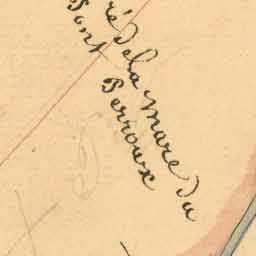 ré de la mare du
Pont Perroux